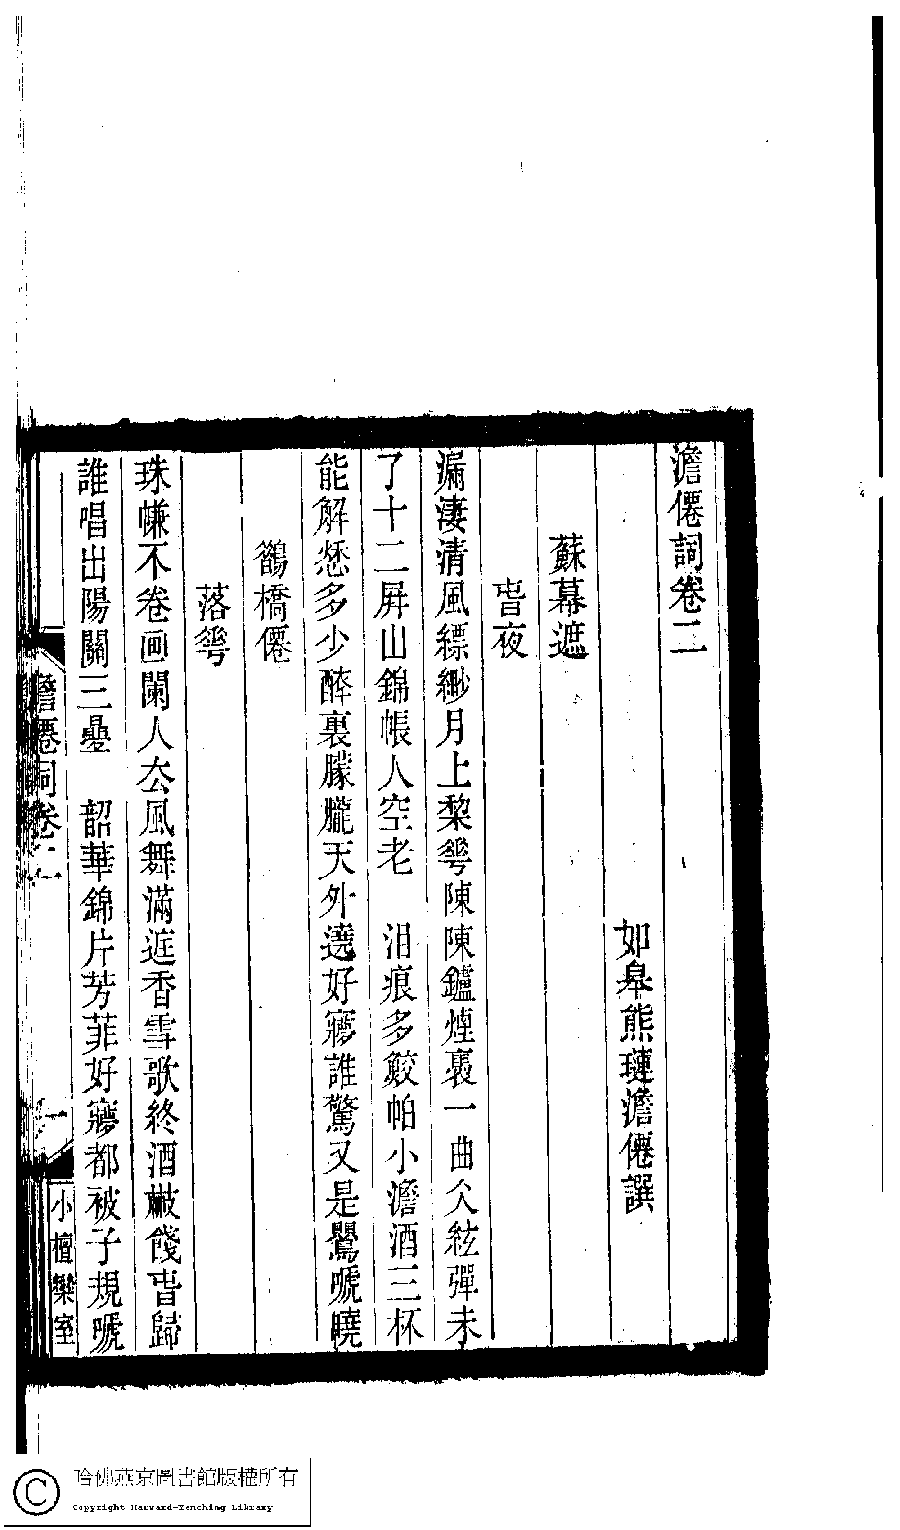 澹僊詞卷二
如皋熊璉澹僊譔
蘇幕遮
旾夜
漏淒清風縹緲月上棃蕚陳陳鑪煙裛一曲仌絃彈未
了十二屛山錦帳人空老　泪痕多鮫帕小澹酒三杯
能解愁多少醉裏朦朧天外遶好寱誰驚又是鸎嗁曉
鵲橋僊
落蕚
珠㡘不卷画闌人厺風舞滿𨓍香雪歌終酒㪔餞旾歸
誰唱出陽關三疊　韶華錦片芳菲好寱都被子規嗁
澹僊詞卷二
一
小檀欒室
哈佛燕京圖書館版權所有
Copyright Harvard-Yenching Library